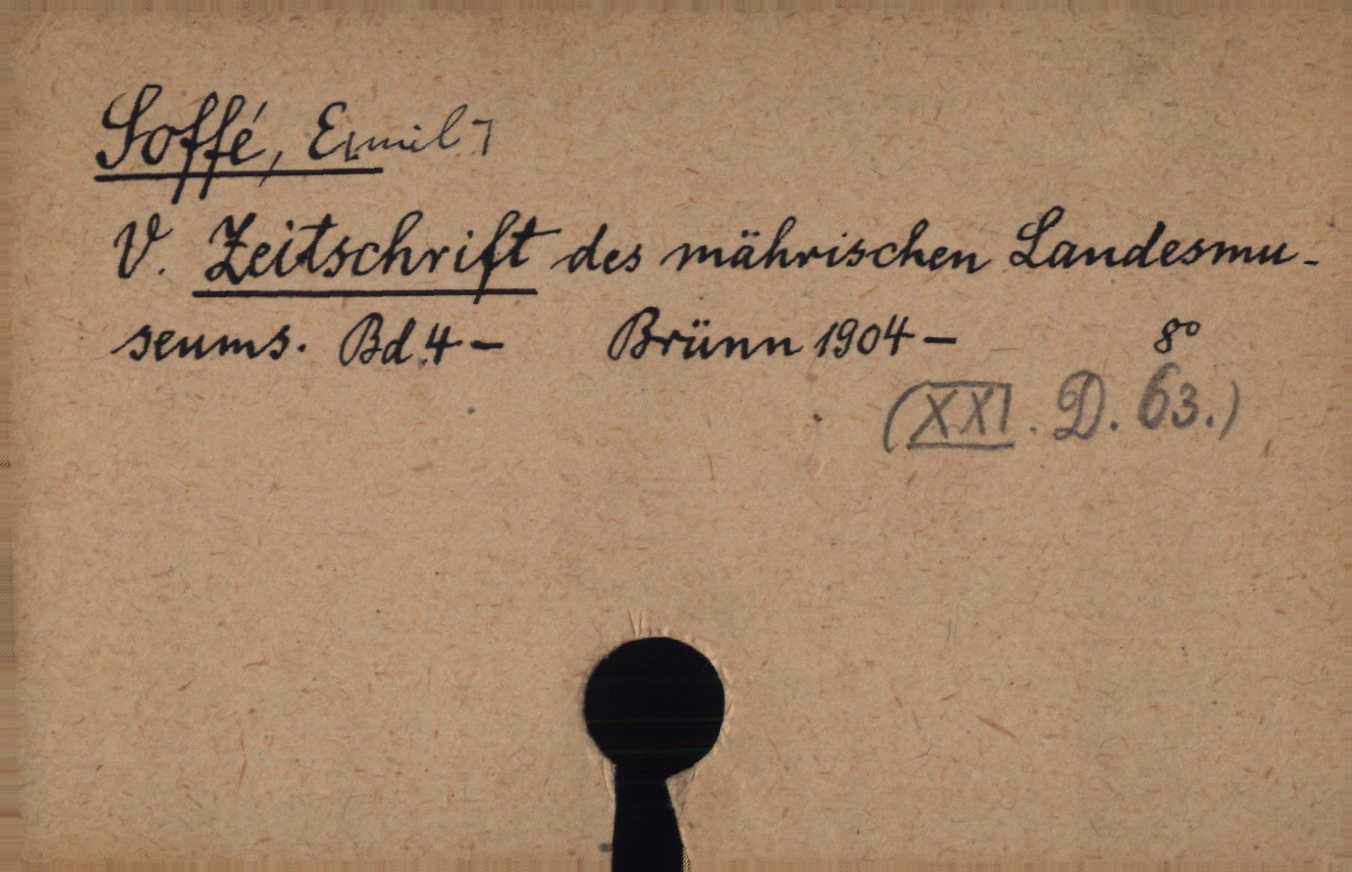 Soffé, E[mil]
V. Zeitschrift des mährischen Landesmu-
seums. Bd. 4 – Brünn 1904 – 8°
(XXI. D. 63.)